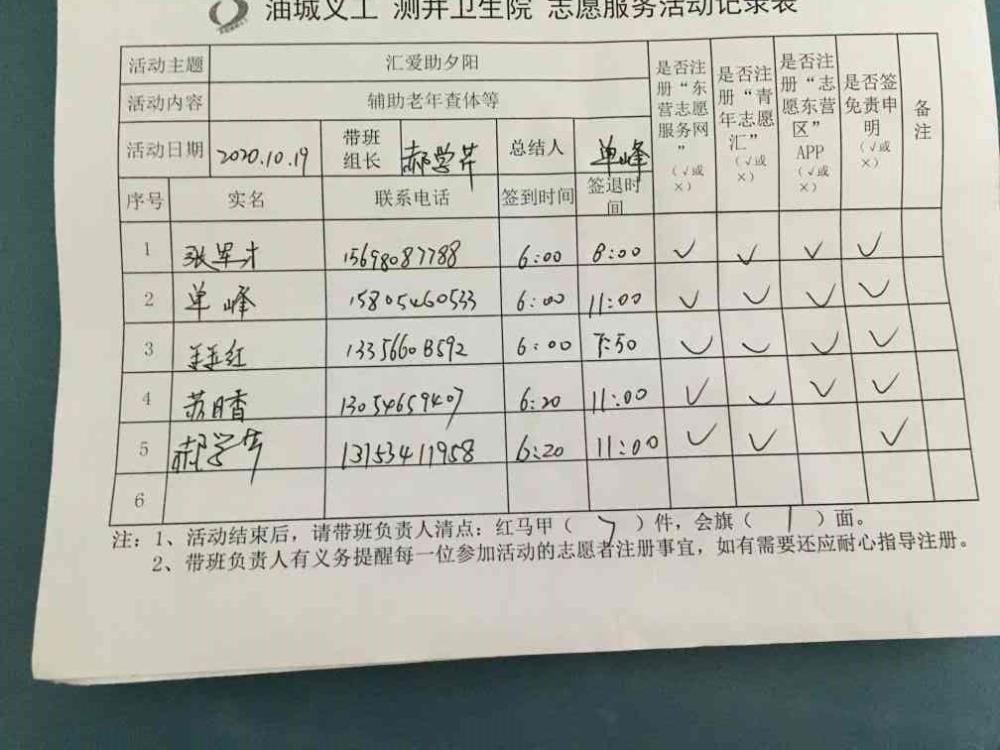 油城义工 测井卫生院 志愿服务活动记录表
活动主题 汇爱助夕阳 是否注册“东营志愿服务网”（√或×） 是否注册“青年志愿汇”（√或×） 是否注册“志愿东营区”APP（√或×） 是否签免责申明（√或×） 备注
活动内容 辅助老年查体等
活动日期 2020.10.19 带班组长 郝学芹 总结人 单峰
序号 实名 联系电话 签到时间 签退时间
1 张军才 15698087788 6:00 8:00 √ √ √ √
2 单峰 15805460533 6:00 11:00 √ √ √ √
3 红 6:00 √ √ √ √
4 苏月香 13054659407 6:20 11:00 √ √ √ √
5 郝学芹 13153411958 6:20 11:00 √ √ √
6
注：1、活动结束后，请带班负责人清点：红马甲（ 7 ）件，会旗（ 1 ）面。
2、带班负责人有义务提醒每一位参加活动的志愿者注册事宜，如有需要还应耐心指导注册。